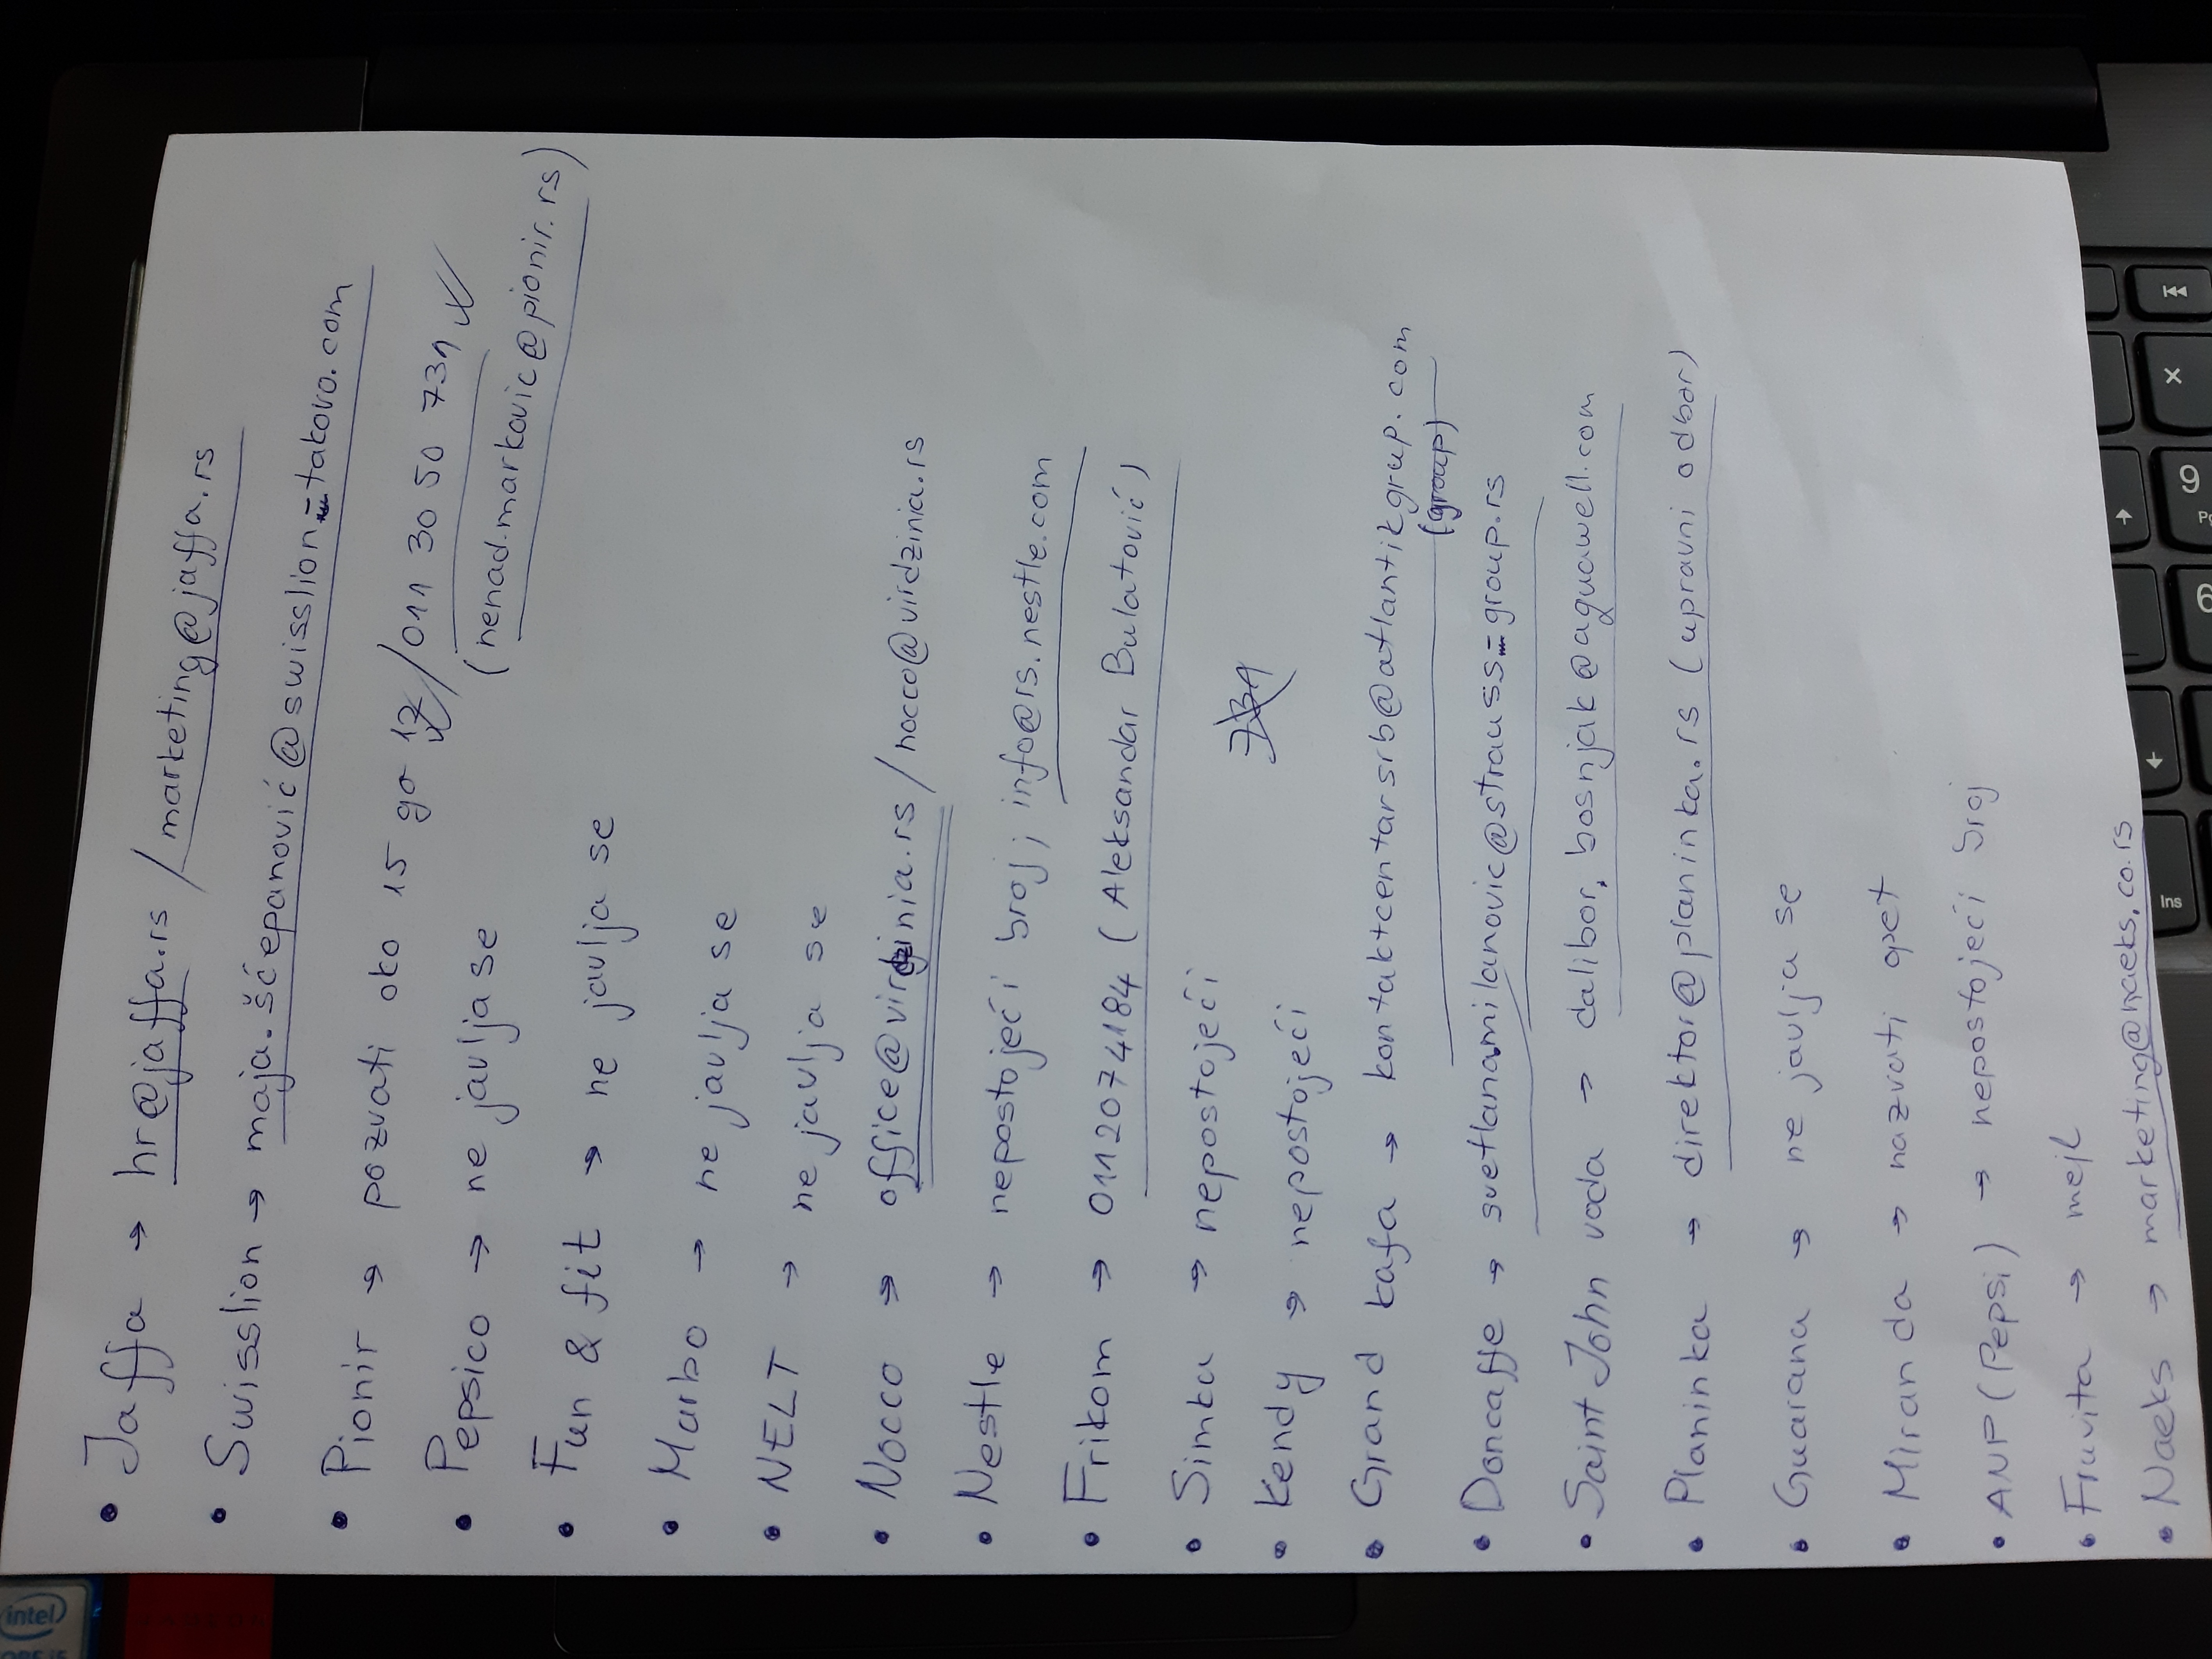 intel
• Jaffa → hr@jaffa.rs / marketing@jaffa.rs
• Swisslion → maja.šćepanović@swisslion-takovo.com
• Pionir → pozvati oko 15 go 12 / 011 30 50 731
(nenad.markovic@pionir.rs)
• Pepsico → ne javlja se
• Fun & fit → ne javlja se
• Marbo → ne javlja se
• NELT → ne javlja se
• Nocco → office@virdzinia.rs / nocco@virdzinia.rs
• Nestle → nepostojeći broj; info@rs.nestle.com
• Frikom → 0112074184 (Aleksandar Bulatović)
• Simka → nepostojeći
731
• Kendy → nepostojeći
• Grand kafa → kontaktcentarsrb@atlantikgrup.com
(group)
• Doncaffe → svetlana.milanovic@strauss-group.rs
• Saint John voda → dalibor.bosnjak@aguawell.com
• Planinka → direktor@planinka.rs (upravni odbor)
• Guarana → ne javlja se
• Miranda → nazvati opet
• ANP (Pepsi) → nepostojeći broj
• Fruvita → mejl
• Naeks → marketing@naeks.co.rs
Ins
9
6